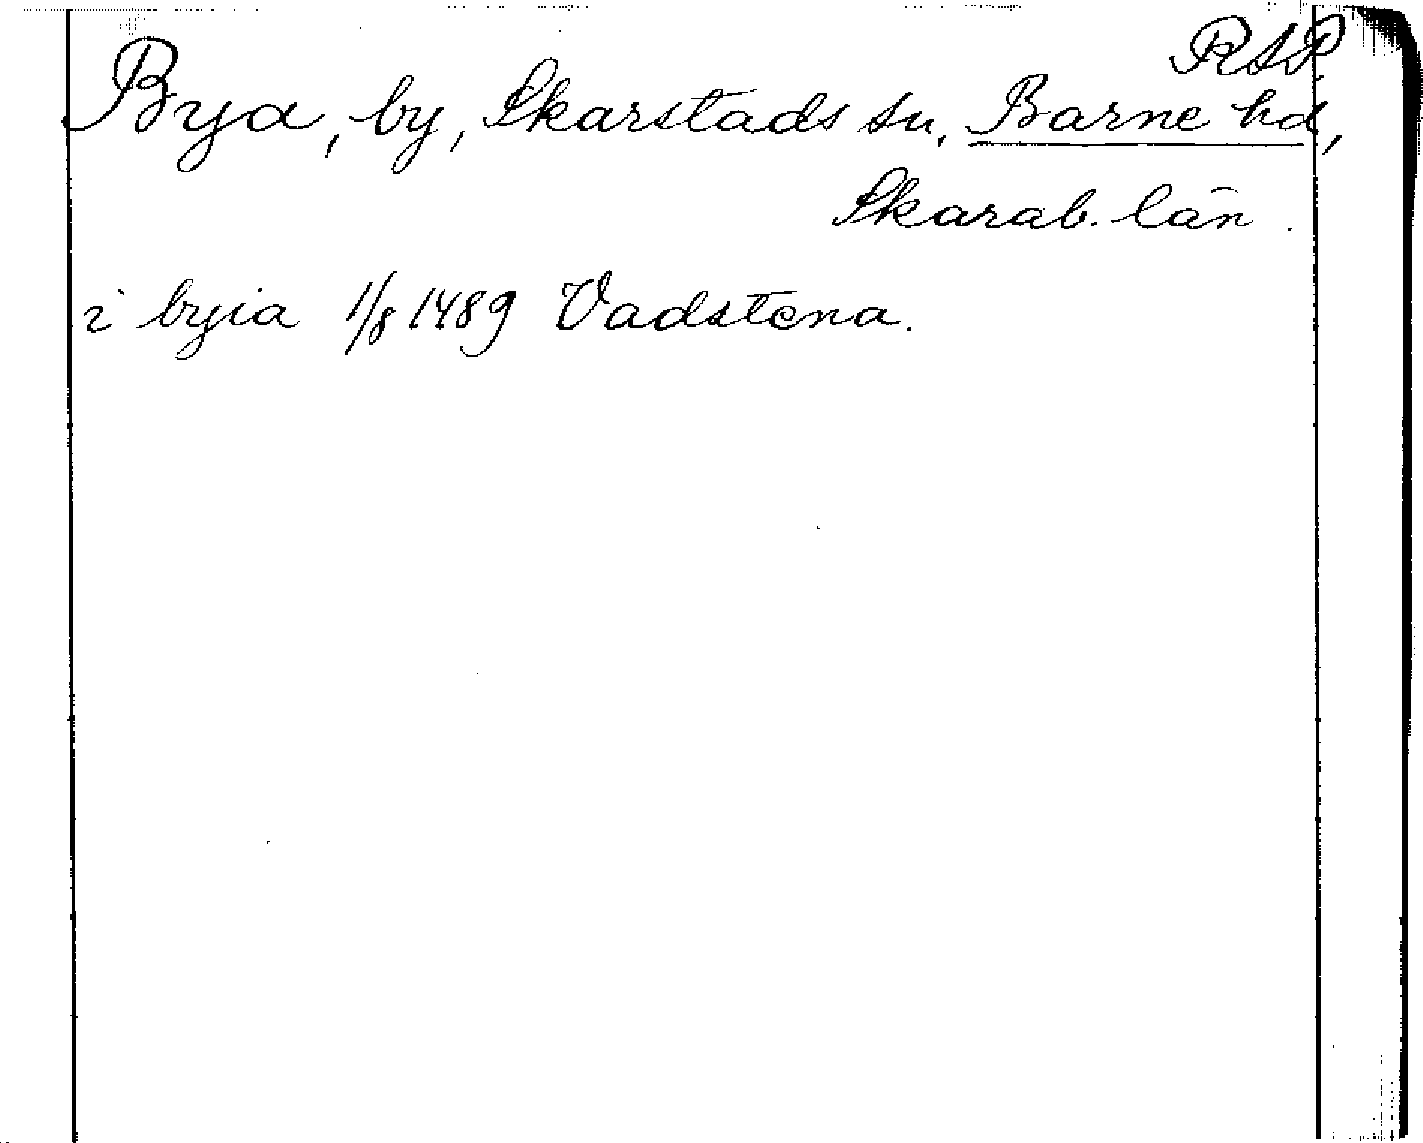 RAP.
Bya, by, Skarstads sn, Barne hd,
Skarab. län.
i byia 1/8 1489 Vadstena.